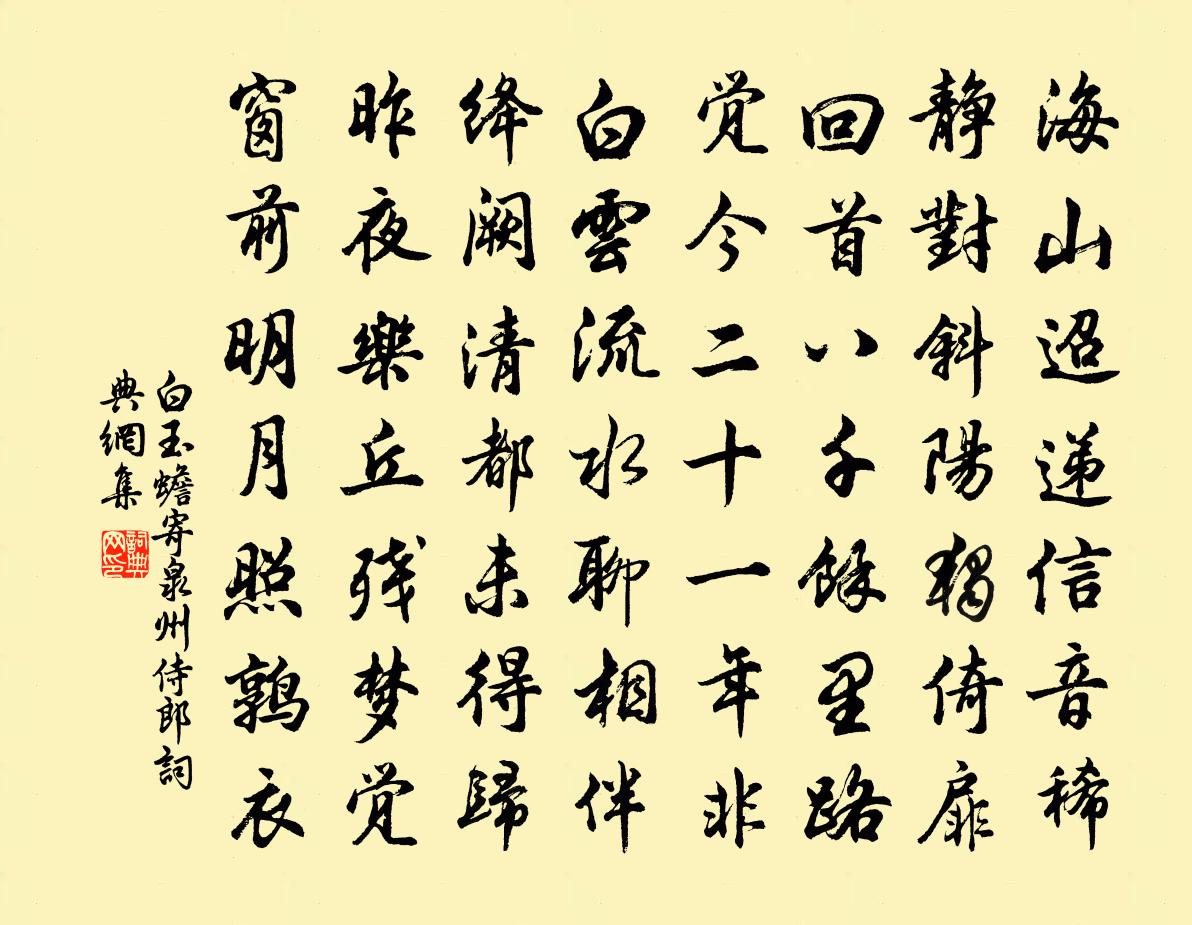 海山迢递信音稀
静對斜陽独倚扉
回首八千餘里路
覚今二十一年非
白雲流水聊相伴
绛阙清都未得歸
昨夜樂丘残梦覚
窗前明月照鹑衣
白玉蟾寄泉州侍郎詞
典網集
詞典
网印